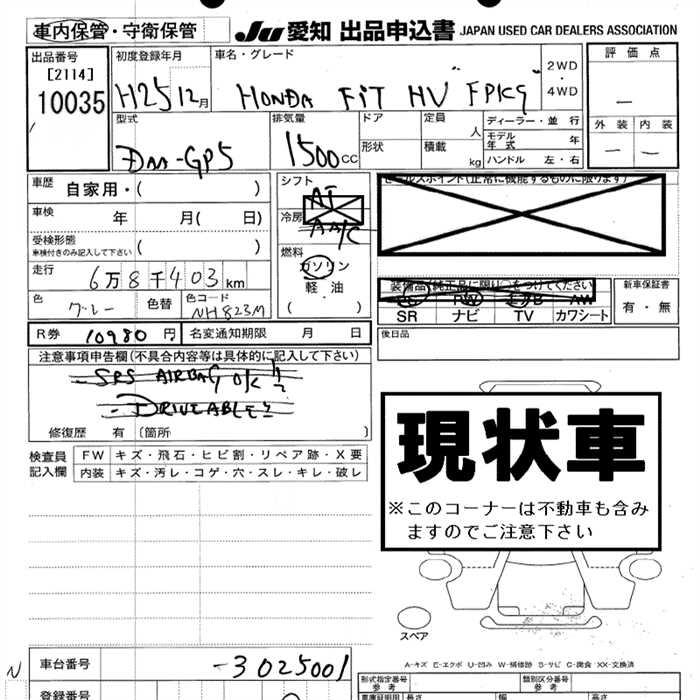 車内保管・守衛保管
JU 愛知 出品申込書 JAPAN USED CAR DEALERS ASSOCIATION
出品番号
[2114]
10035
初度登録年月
H25 12月
車名・グレード
HONDA FIT HV "FPKG"
2WD
・
4WD
評価点
—
外装 内装
— —
型式
DAA-GP5
排気量
1500cc
ドア
形状
定員 人
積載 kg
ディーラー・並行
モデル年式 年
ハンドル 左・右
車歴 自家用・( )
車検 年 月( 日)
受検形態
車検付きのみ記入して下さい ( )
走行 6万8千403km
色 グレー 色替 色コード NH823M
シフト
AT
冷房
AA/C
燃料
ガソリン
軽油
( )
セールスポイント(正常に機能するものに限ります)
装備品(純正品に限り○をつけてください)
PS PW エアB AW
SR ナビ TV カワシート
新車保証書
有・無
R券 10980円 名変通知期限 月 日
後日品
注意事項申告欄(不具合内容等は具体的に記入して下さい)
- SRS AIRBAG OK
- DRIVEABLE
修復歴 有 〔箇所 〕
検査員記入欄
FW キズ・飛石・ヒビ割・リペア跡・X要
内装 キズ・汚レ・コゲ・穴・スレ・キレ・破レ
現状車
※このコーナーは不動車も含み
ますのでご注意下さい
スペア
A-キズ E-エクボ U-凹み W-補修跡 S-サビ C-腐食 XX-交換済
N
車台番号 -3025001
登録番号
形式指定番号
参考
類別区分番号
参考
車庫証明用 長さ 幅 高さ